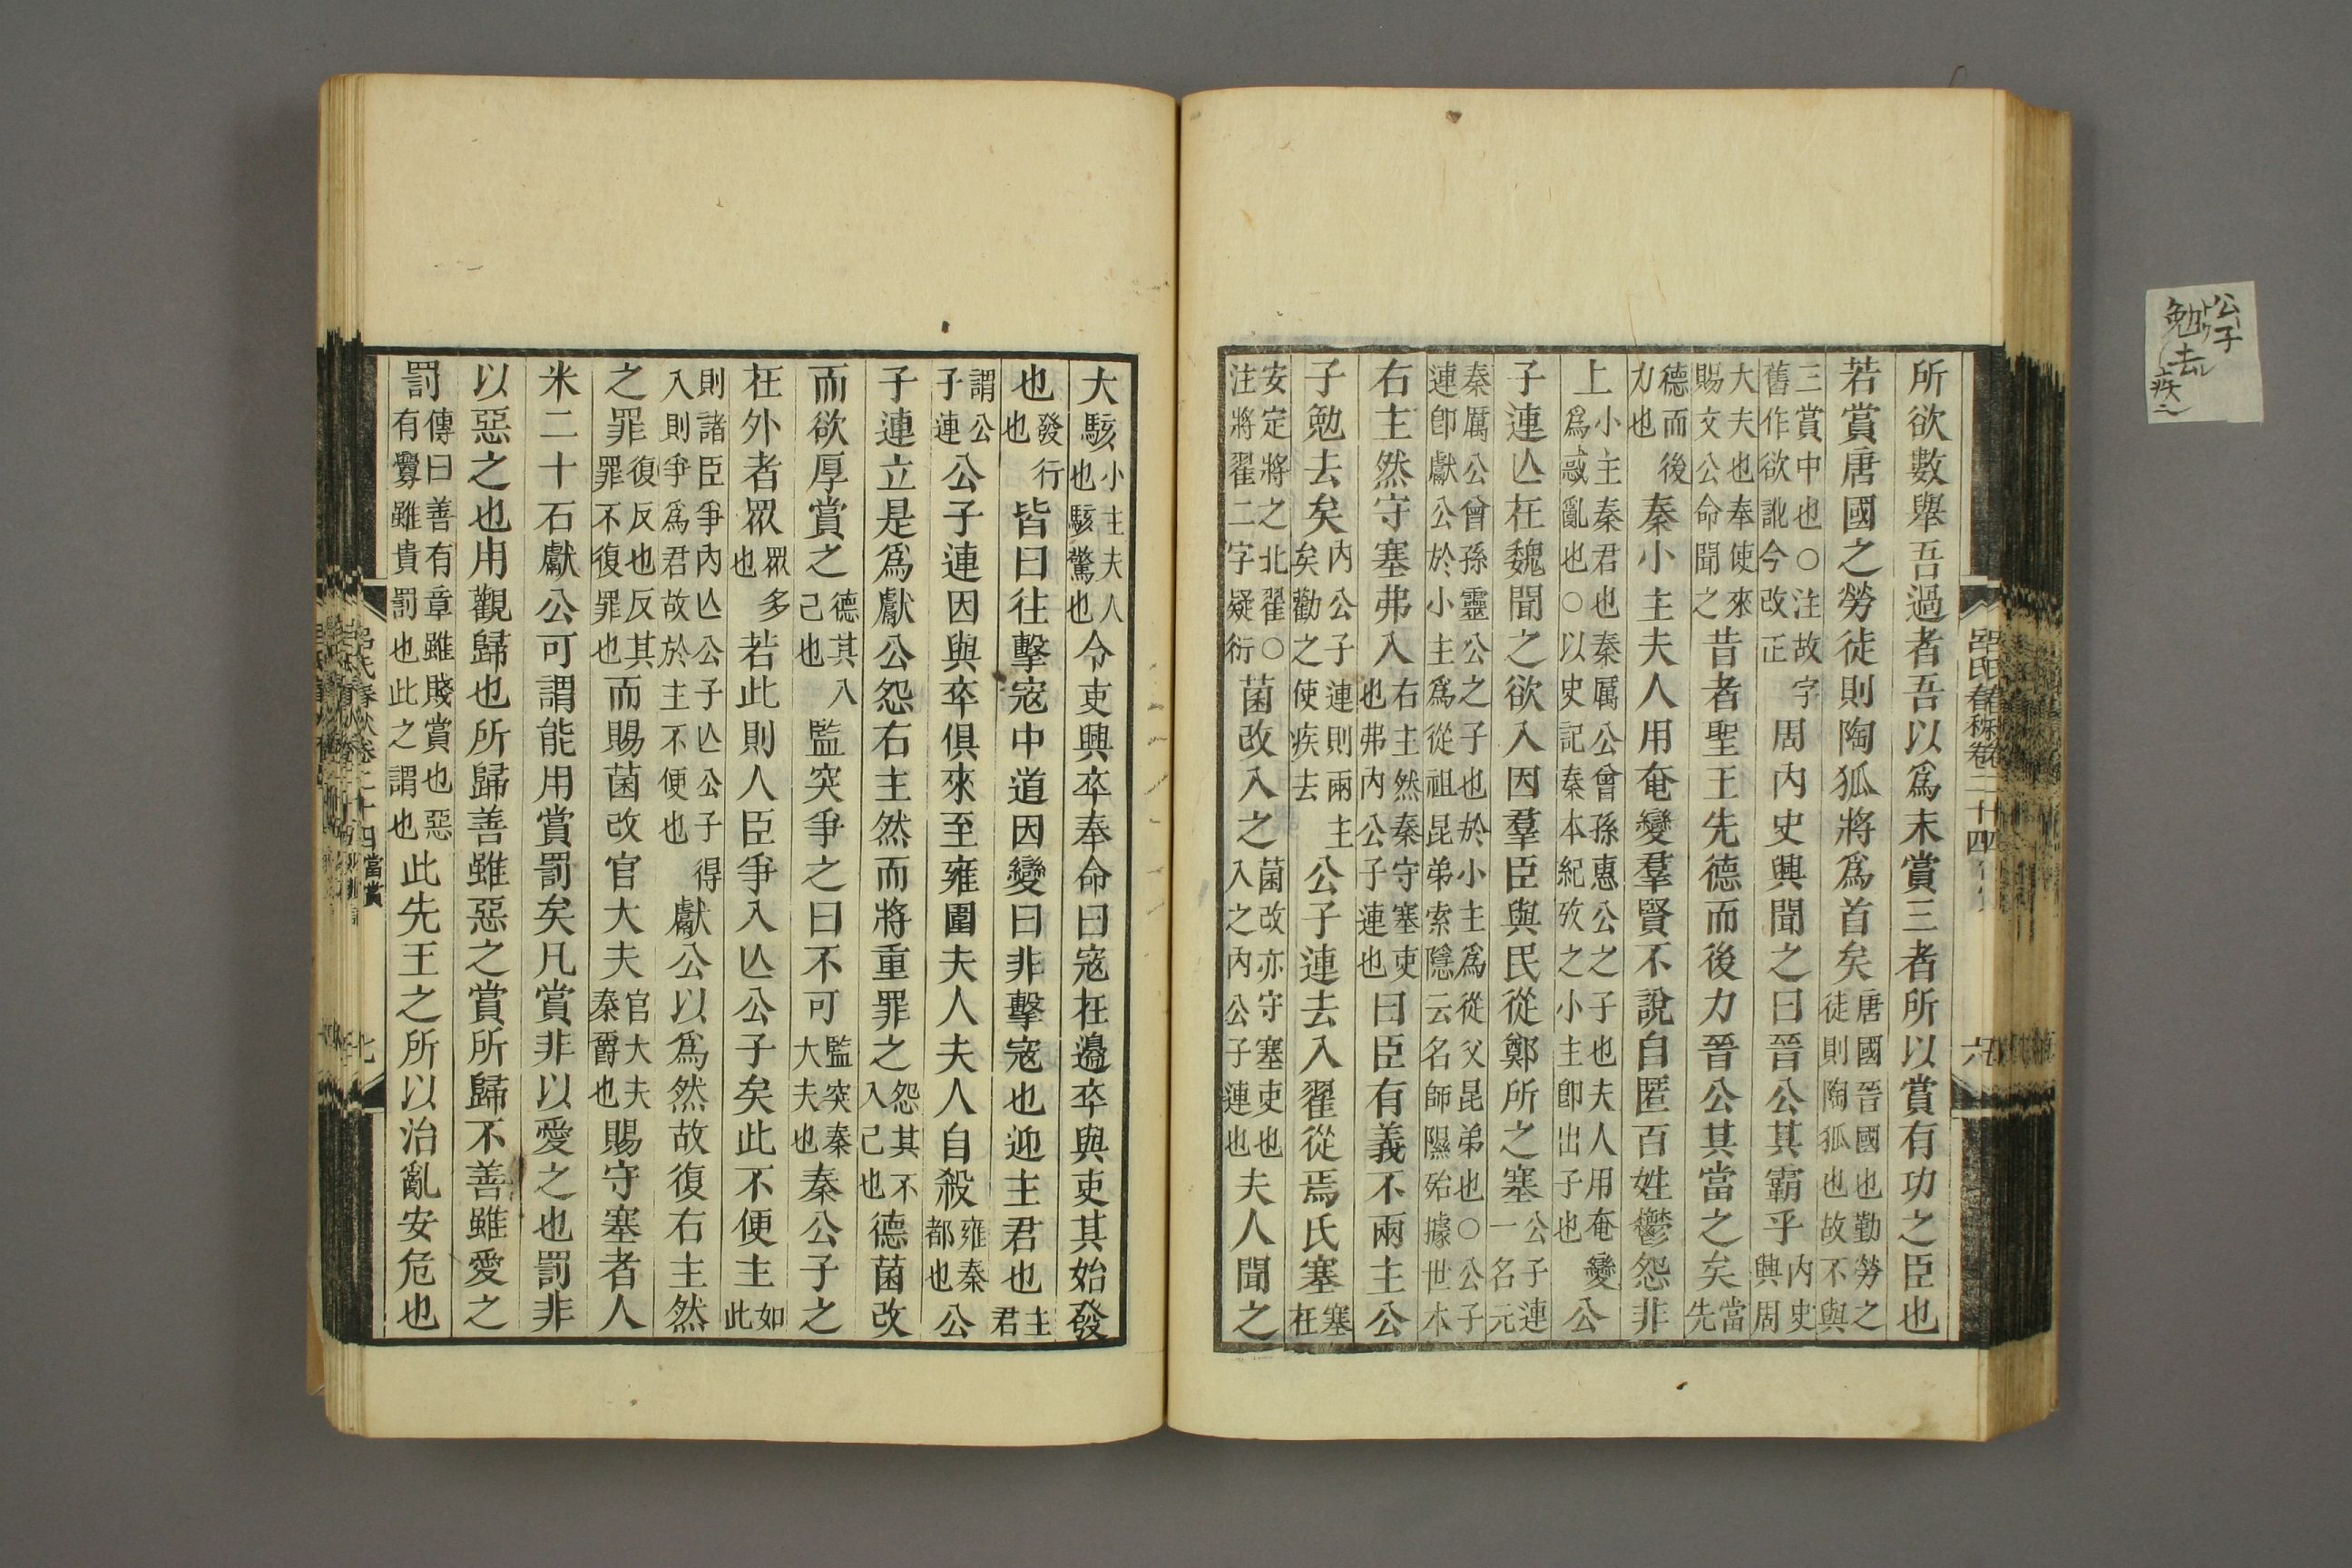 呂氏春秋卷二十四 六
所欲數舉吾過者吾以爲末賞三者所以賞有功之臣也
若賞唐國之勞徒則陶狐將爲首矣唐國晉國也勤勞之徒則陶狐也故不與
三賞中也○注故字舊作欲訛今改正周內史興聞之曰晉公其霸乎內史興周
大夫也奉使來賜文公命聞之昔者聖王先德而後力晉公其當之矣當先
德而後力也秦小主夫人用奄變羣賢不說自匿百姓鬱怨非
上小主秦君也秦厲公曾孫惠公之子也夫人用奄變爲亂也○以史記秦本紀攷之小主卽出子也公
子連亾在魏聞之欲入因羣臣與民從鄭所之塞公子連一名元
秦厲公曾孫靈公之子也於小主爲從父昆弟也○公子連卽獻公於小主爲從祖昆弟索隱云名師隰殆據世本
右主然守塞弗入右主然秦守塞吏也弗內公子連也曰臣有義不兩主公
子勉去矣內公子連則兩主矣勸之使疾去公子連去入翟從焉氏塞塞在
安定將之北翟○注將翟二字疑衍菌改入之菌改亦守塞吏也入之內公子連也夫人聞之
大駭小主夫人也駭驚也令吏興卒奉命曰寇在邊卒與吏其始發
也發行也皆曰往擊寇中道因變曰非擊寇也迎主君也主君
謂公子連公子連因與卒俱來至雍圍夫人夫人自殺雍秦都也公
子連立是爲獻公怨右主然而將重罪之怨其不入己也德菌改
而欲厚賞之德其入己也監突爭之曰不可監突秦大夫也秦公子之
在外者眾眾多也若此則人臣爭入亾公子矣此不便主如此
則諸臣爭內亾公子亾公子得入則爭爲君故於主不便也獻公以爲然故復右主然
之罪復反也反其罪不復罪也而賜菌改官大夫官大夫秦爵也賜守塞者人
米二十石獻公可謂能用賞罰矣凡賞非以愛之也罰非
以惡之也用觀歸也所歸善雖惡之賞所歸不善雖愛之
罰傳曰善有章雖賤賞也惡有釁雖貴罰也此之謂也此先王之所以治亂安危也
呂氏春秋卷二十四 當賞 七
公子
勉去
疾